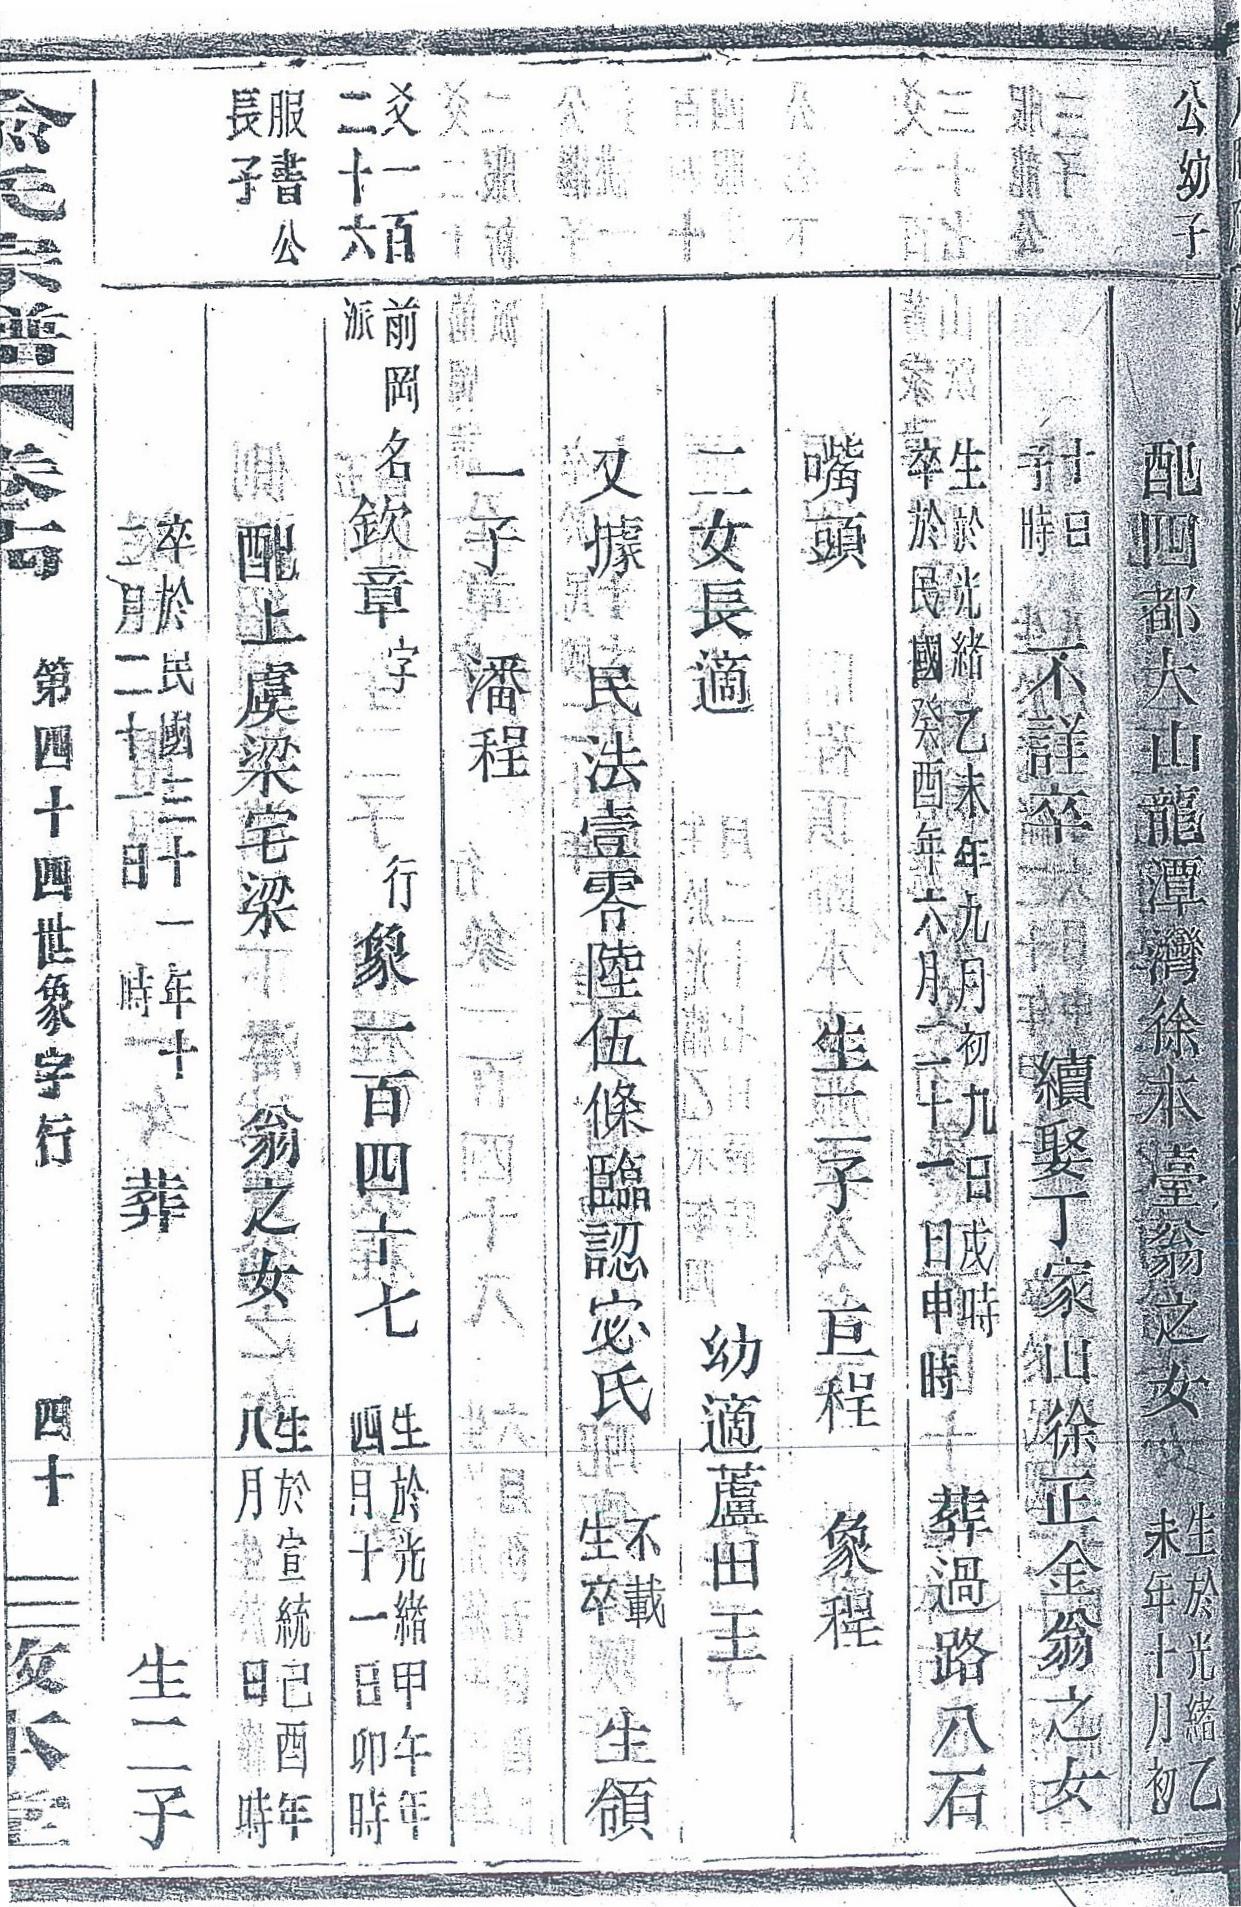 公幼子
配四都大山龍潭灣徐本臺翁之女
生於光緒乙
未年十月初
十日
子時
不詳卒
續娶丁家山徐正金翁之女
生於光緒乙未年九月初九日戌時
卒於民國癸酉年六月二十一日申時
葬過路八石
嘴頭
生二子
亘程
象程
二女長適
幼適蘆田王
又據
民法壹零陸伍條臨認宓氏
不載
生卒
生領
一子
潘程
爻一百
二十六
服書公
長子
前岡
派
名欽章字
行象一百四十七
生於光緒甲午年
四月十一日卯時
配上虞梁宅梁
翁之女
生於宣統己酉年
八月
日
時
卒於民國三十一年十
二月二十一日
時
葬
生二子
俞氏宗譜
卷
第四十四世象字行
四十
敦本堂